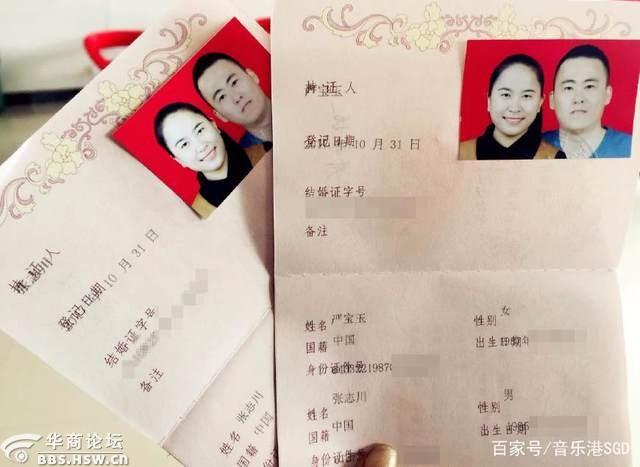 持证人
登记日期 10 月 31 日
结婚证字号
备注
姓名 张志川
国籍 中国
持证人
严宝玉
登记日期
年 10 月 31 日
结婚证字号
备注
姓名 严宝玉 性别 女
国籍 中国 出生日期
身份证件号
姓名 张志川 性别 男
国籍 中国
华商论坛
BBS.HSW.CN
百家号/音乐港SGD